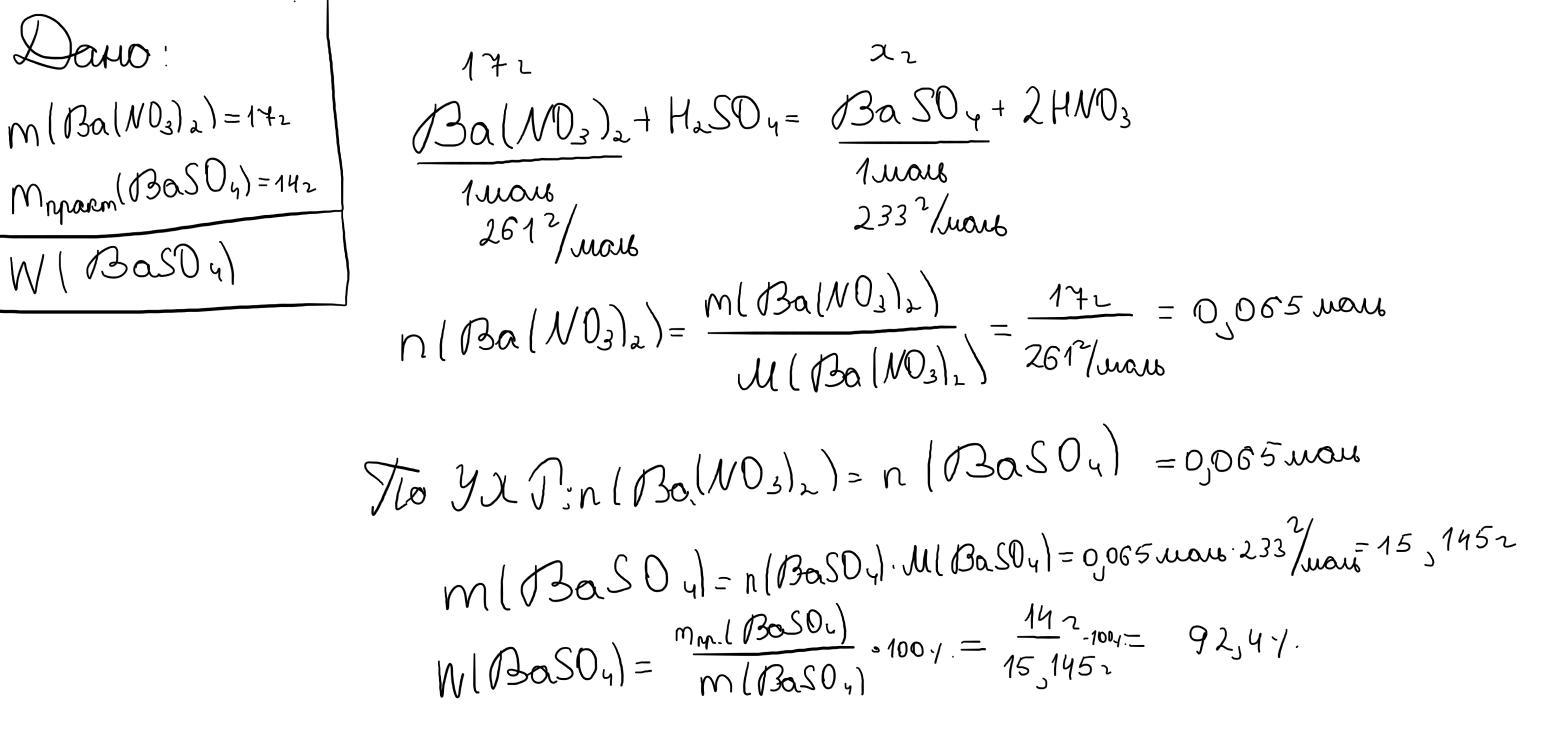 Дано:
m(Ba(NO₃)₂)=17г
mпракт(BaSO₄)=14г
W(BaSO₄)
17г xг
Ba(NO₃)₂+H₂SO₄= BaSO₄+2HNO₃
1моль 1моль
261г/моль 233г/моль
n(Ba(NO₃)₂)= m(Ba(NO₃)₂)/M(Ba(NO₃)₂) = 17г/261г/моль = 0,065 моль
По УХР: n(Ba(NO₃)₂)= n(BaSO₄) =0,065моль
m(BaSO₄)=n(BaSO₄)·M(BaSO₄)=0,065моль·233г/моль=15,145г
W(BaSO₄)= mпр.(BaSO₄)/m(BaSO₄) ·100%= 14г/15,145г ·100%= 92,4%.